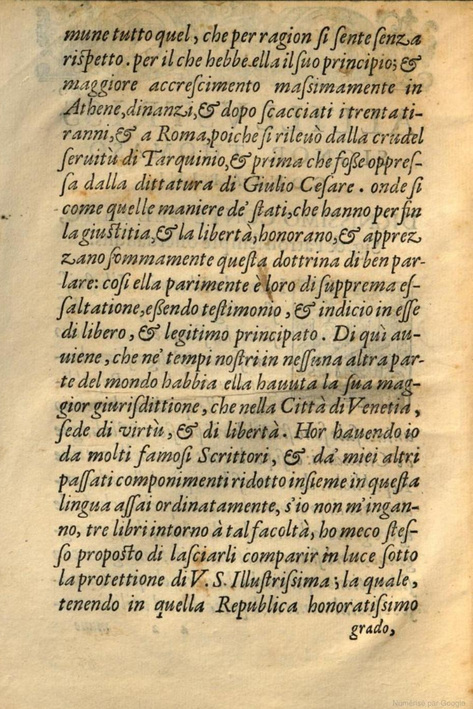 mune tutto quel, che per ragion si sente senza
rispetto. per il che hebbe ella il suo principio; &
maggiore accrescimento massimamente in
Athene, dinanzi, & dopo scacciati i trenta ti-
ranni, & a Roma, poiche si rileuò dalla crudel
seruitù di Tarquinio, & prima che fosse oppres-
sa dalla dittatura di Giulio Cesare. onde si
come quelle maniere de' stati, che hanno per fin
la giustitia, & la libertà, honorano, & apprez
zano sommamente questa dottrina di ben par-
lare: così ella parimente è loro di suprema es-
saltatione, essendo testimonio, & indicio in esse
di libero, & legitimo principato. Di quì au-
uiene, che ne' tempi nostri in nessuna altra par-
te del mondo habbia ella hauuta la sua mag-
gior giurisdittione, che nella Città di Venetia,
sede di virtù, & di libertà. Hor hauendo io
da molti famosi Scrittori, & da' miei altri
passati componimenti ridotto insieme in questa
lingua assai ordinatamente, s'io non m'ingan-
no, tre libri intorno à tal facoltà, ho meco stes-
so proposto di lasciarli comparir in luce sotto
la protettione di V. S. Illustrissima; la quale,
tenendo in quella Republica honoratissimo
grado,
Numérisé par Google